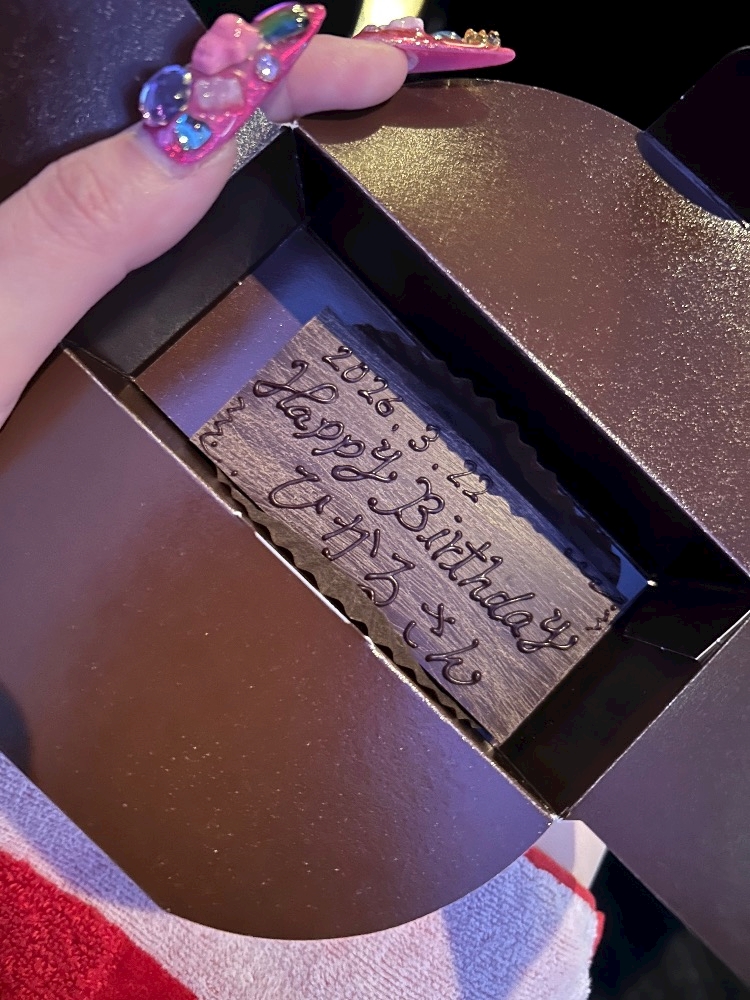 2026.3.22
Happy Birthday
ひかるさん